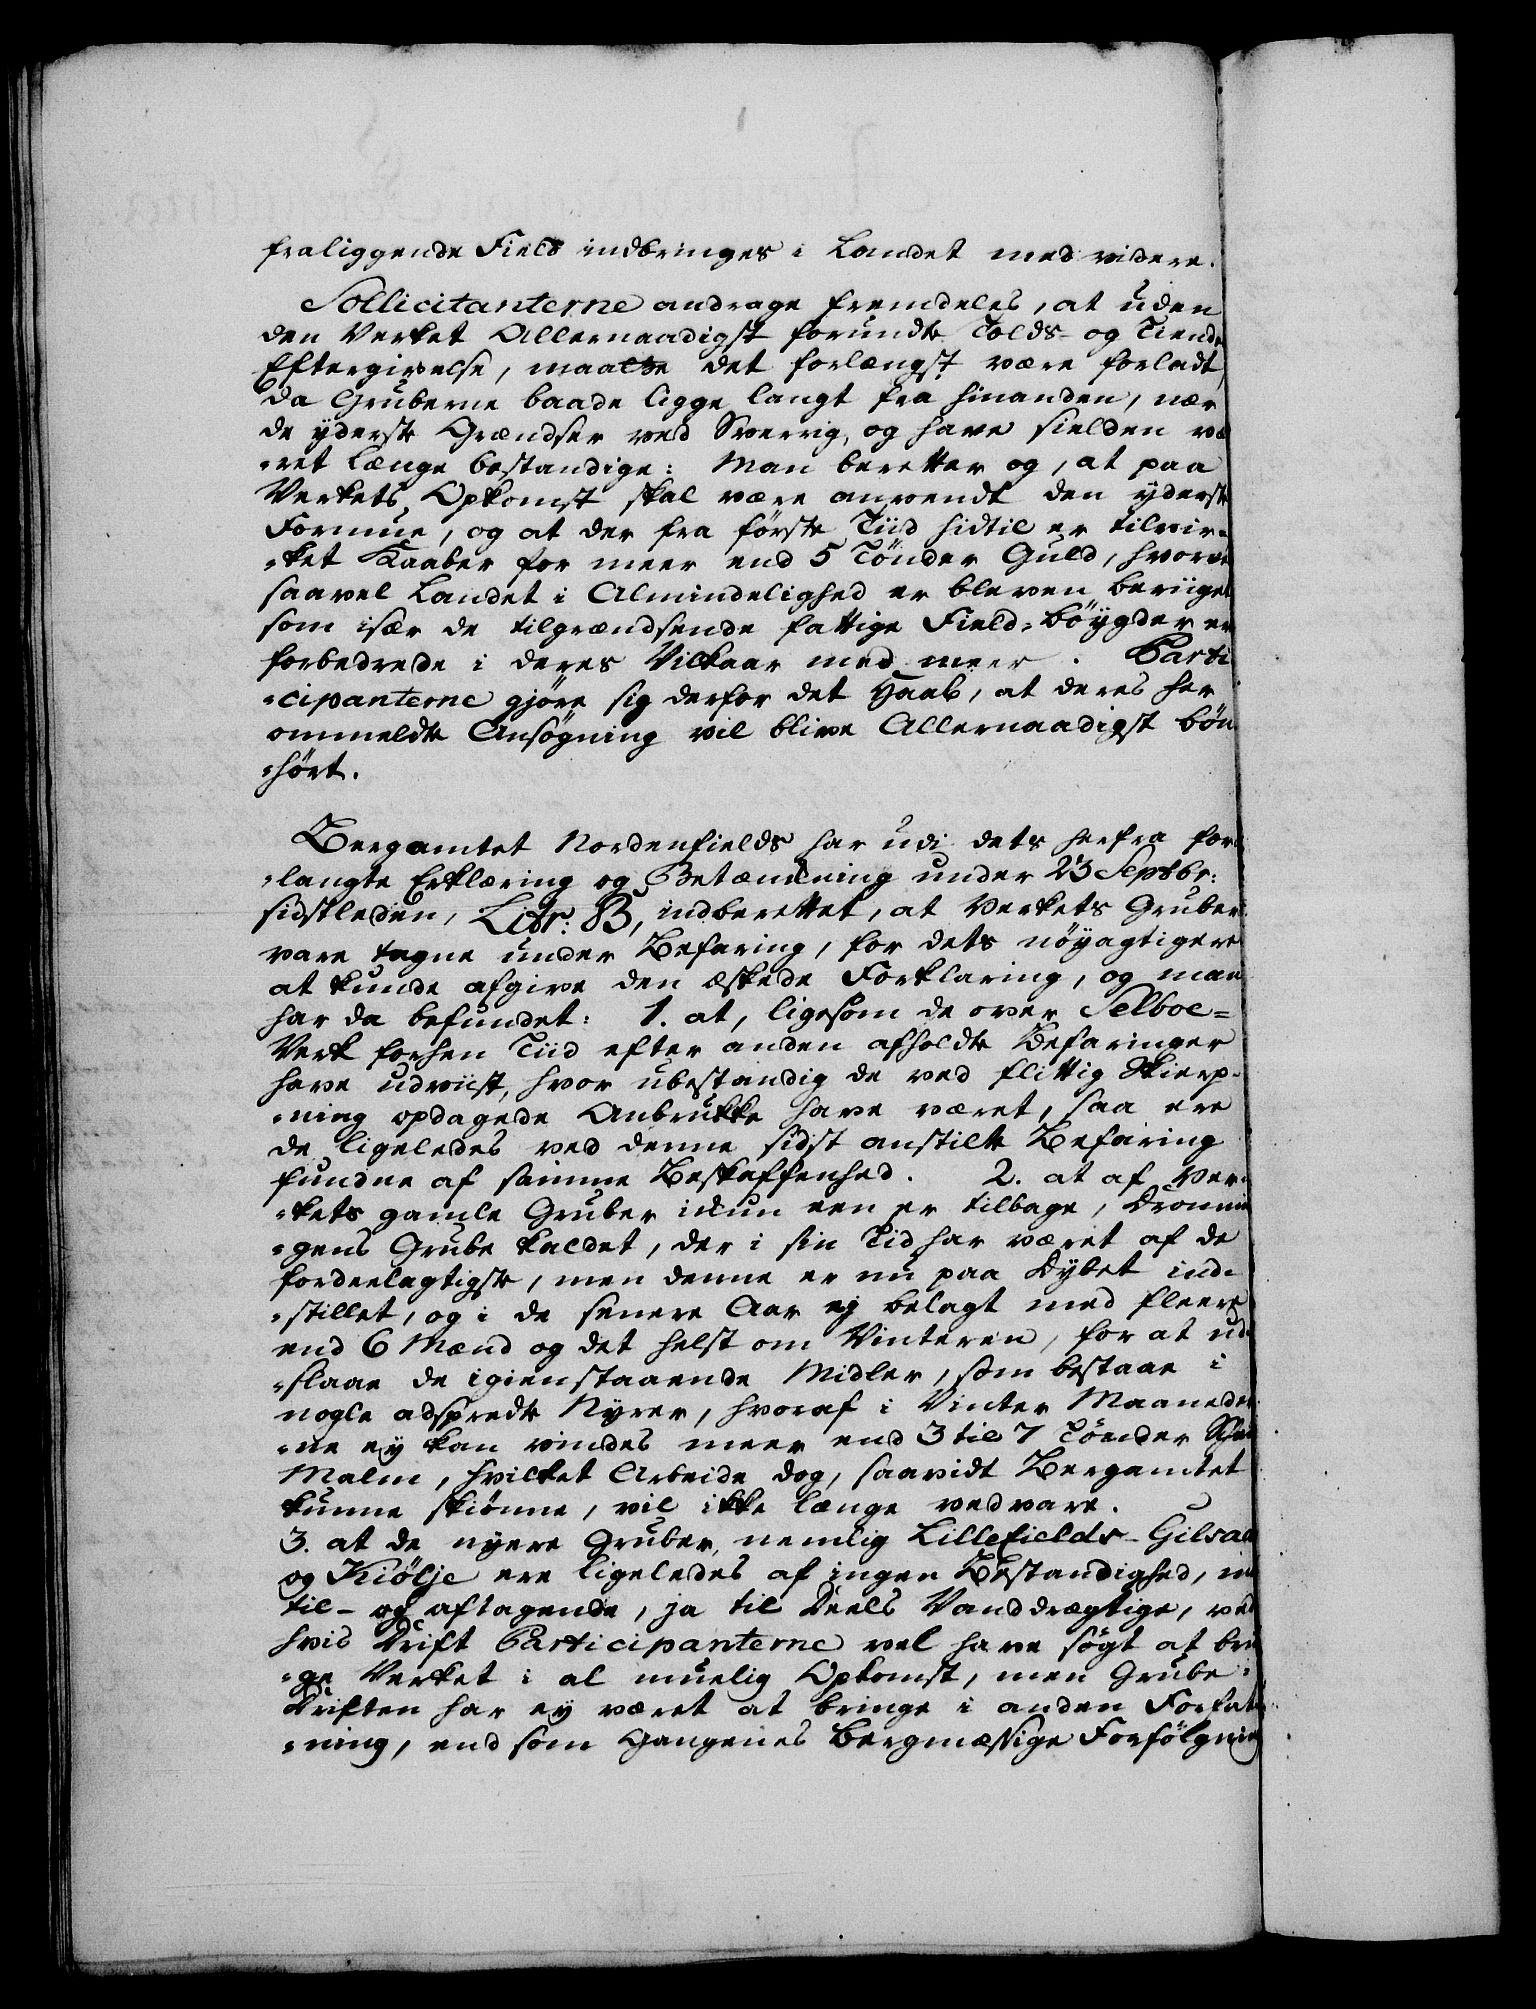 fraliggende Field indbringes i Landet med videre.
Sollicitanterne andrage fremdeles, at uden
den Verket Allernaadigst forundte Tolds- og Tiende
Eftergivelse, maatte det forlængst være forladt,
da Gruberne baade ligge langt fra hinanden, nær
de yderste Grændser ved Sverrig, og have sielden væ
-ret længe bestandige: Man beretter og, at paa
Verkets Opkomst skal være anvendt den yderste
Formue, og at der fra förste Tiid hidtil er tilvir-
-ket Kaaber for meer end 5 Tönder Guld, hvorved
saavel Landet i Almindelighed er bleven beriiget
som især de tilgrændsende fattige Field-böygder er
forbedrede i deres Vilkaar med meer. Parti
-cipanterne gjöre sig derfor det Haab, at deres her
ommeldte Ansögning vil blive Allernaadigst bön
-hört.
Bergamtet Nordenfields har udi dets herfra for
-langte Erklæring og Betænkning under 23 Septbr:
sidstleden, Litr: B, indberettet, at Verkets Gruber
vare tagne under Befaring, for dets nöyagtigere
at kunde afgive den æskede Forklaring, og man
har da befundet: 1. at, ligesom de over Selboe=
Verk forhen Tiid efter anden afholdte Befaringer
have udviist, hvor ubestandig de ved flittig Skierp-
-ning opdagede Anbrukke have været, saa ere
de ligeledes ved denne sidst anstilte Befaring
fundne af samme Beskaffenhed. 2. at af Ver-
-kets gamle Gruber ikun een er tilbage, Dronnin
-gens Grube kaldet, der i sin Tid har været af de
fordeelagtigste, men denne er nu paa Dybet ind-
-stillet, og i de senere Aar ej belagt med fleere
end 6 Mænd og det helst om Vinteren, for at ud
-slaae de igienstaaende Midler, som bestaae i
nogle adspredte Nyrer, hvoraf i Vinter Maaneder
-ne ey kan vindes meer end 3 til 7 Tönder
Malm, hvilket Arbeide dog, saavidt Bergamtet
kunne skiönne, vil ikke længe vedvare.
3. at de nyere Gruber, nemlig Lillefields- Gilsaae
og Kiölje ere ligeledes af ingen Bestandighed, men
til- og aftagende, ja til Deels Vanddrægtige, ved
hvis Drift Participanterne vel have sögt at brin
-ge Verket i al muelig Opkomst, men Grube-
Driften har ey været at bringe i anden Forfat
-ning, end som Gangenes bergmæssige Forfölgning